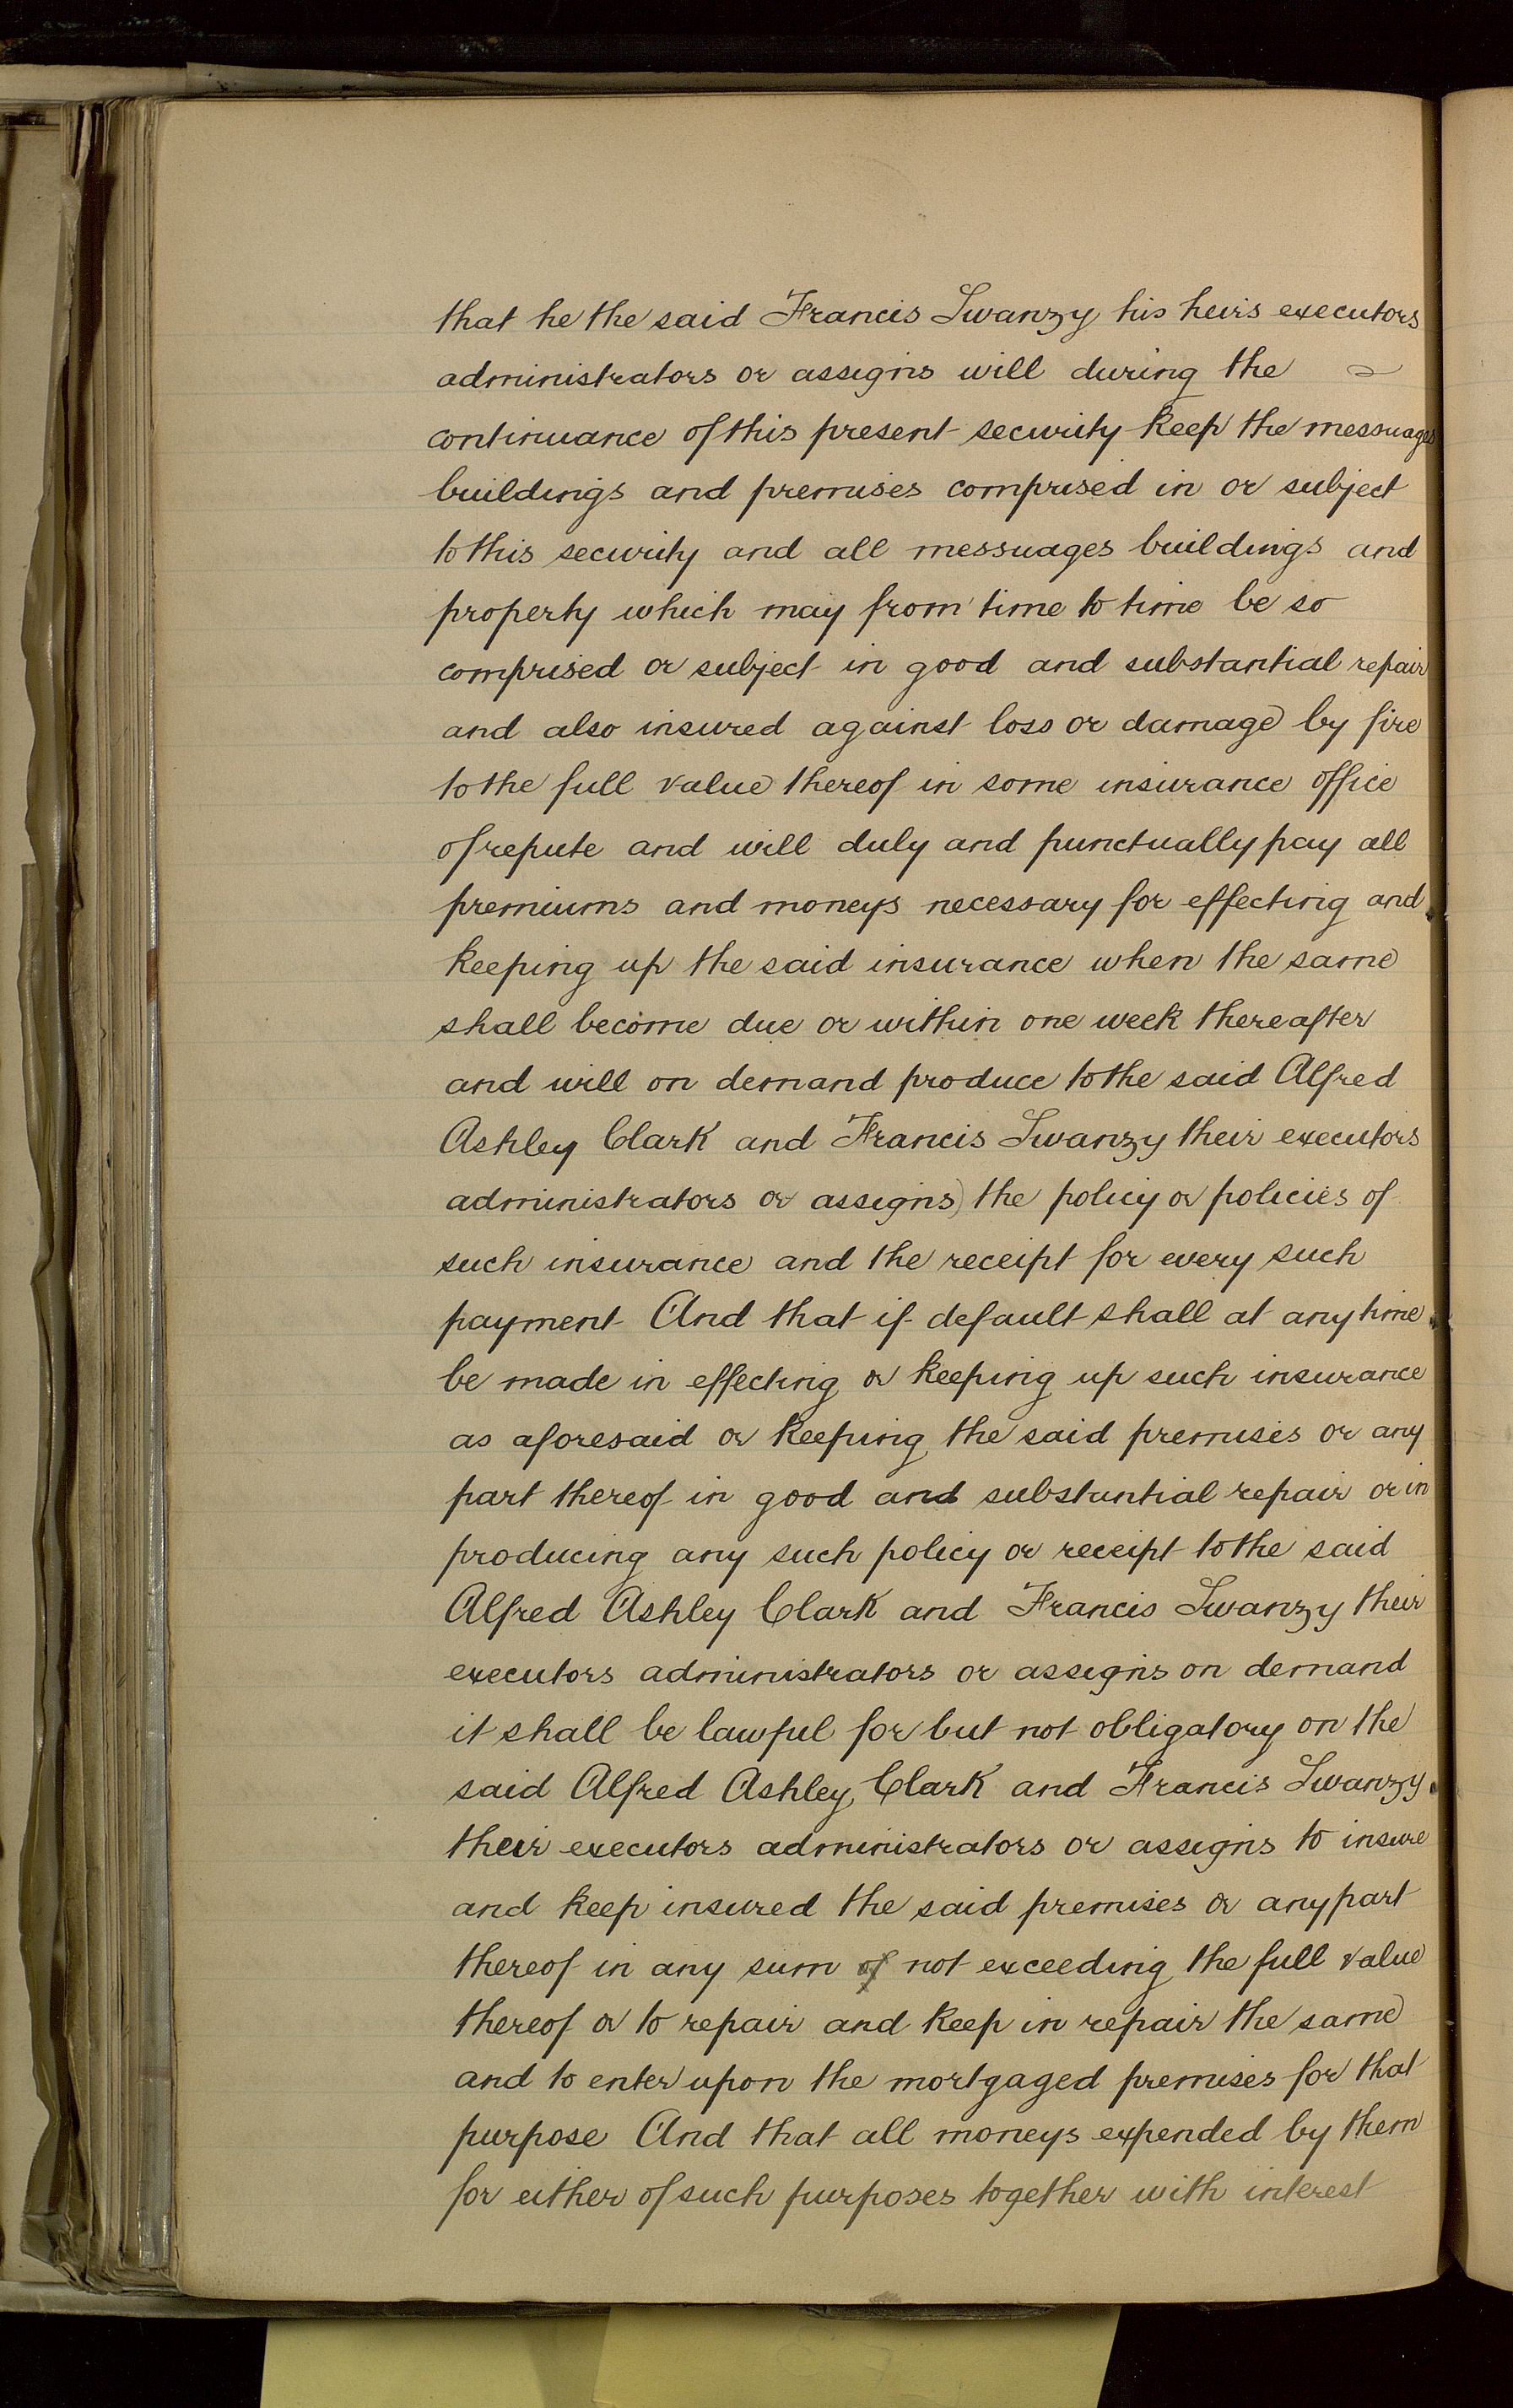 that he the said Francis Swanzy his heirs executors
administrators or assigns will during the
continuance of this present security keep the messuages
buildings and premises comprised in or subject
to this security and all messuages buildings and
property which may from time to time be so
comprised or subject in good and substantial repair
and also insured against loss or damage by fire
to the full value thereof in some insurance office
of repute and will duly and punctually pay all
premiums and moneys necessary for effecting and
keeping up the said insurance when the same
shall become due or within one week thereafter
and will on demand produce to the said Alfred
Ashley Clark and Francis Swanzy their executors
administrators or assigns) the policy or policies of
such insurance and the receipt for every such
payment And that if default shall at any time
be made in effecting or keeping up such insurance
as aforesaid or keeping the said premises or any
part thereof in good and substantial repair or in
producing any such policy or receipt to the said
Alfred Ashley Clark and Francis Swanzy their
executors administrators or assigns on demand
it shall be lawful for but not obligatory on the
said Alfred Ashley Clark and Francis Swanzy
their executors administrators or assigns to insure
and keep insured the said premises or any part
thereof in any sum of not exceeding the full value
thereof or to repair and keep in repair the same
and to enter upon the mortgaged premises for that
purpose And that all moneys expended by them
for either of such purposes together with interest